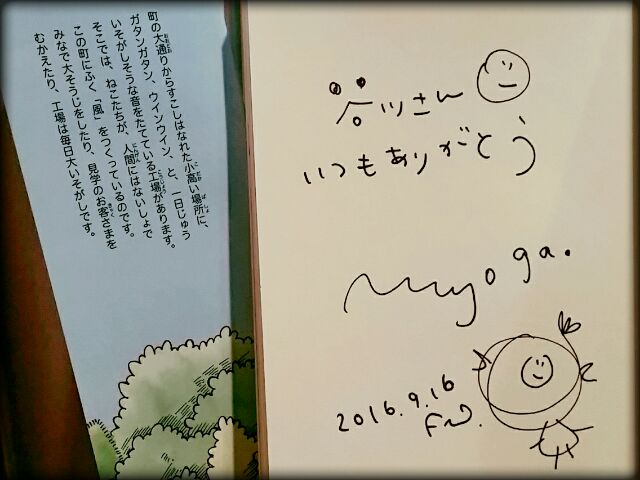 町の大通りからすこしはなれた小高い場所に、
ガタンガタン、ウインウイン、と、一日じゅう
いそがしそうな音をたてている工場があります。
そこでは、ねこたちが、人間にはないしょで
この町にふく「風」をつくっているのです。
みなで大そうじをしたり、見学のお客さまを
むかえたり、工場は毎日大いそがしです。
谷ツさん
いつもありがとう
myoga.
2016.9.16